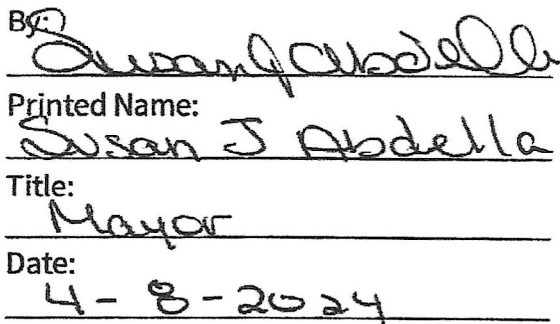 By:
Susan J Abdella
Printed Name:
Susan J Abdella
Title:
Mayor
Date:
4-8-2024